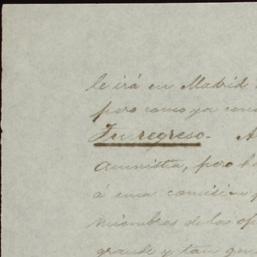 le irá en Madrid
pero como ya
Su regreso. A
amnista, pero h
á una comision p
miembros de las op
grande y tan que